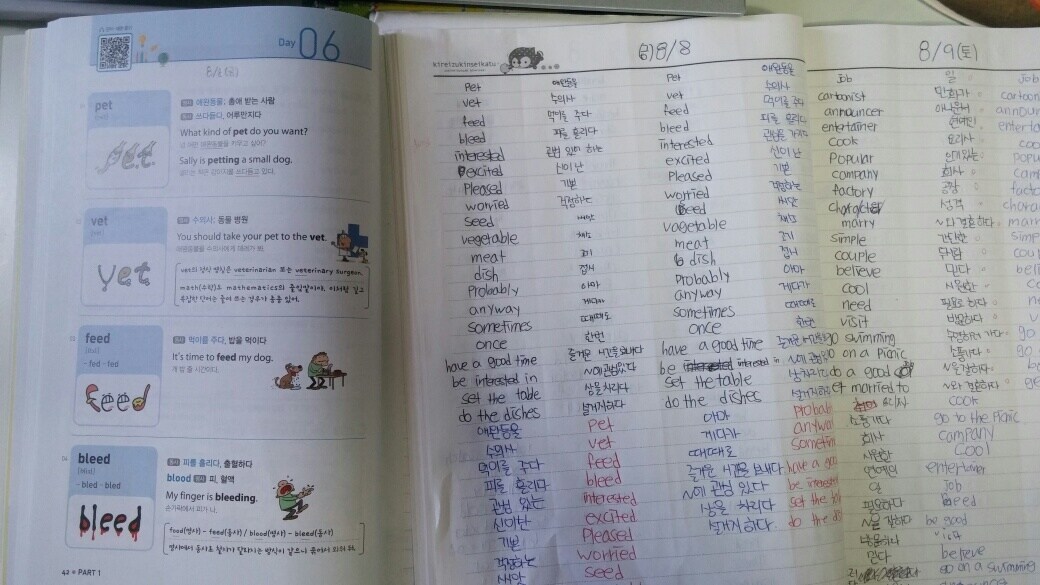 Day 06
pet
명사 애완동물; 총애 받는 사람
동사 쓰다듬다, 어루만지다
What kind of pet do you want?
Sally is petting a small dog.
vet
명사 수의사; 동물 병원
You should take your pet to the vet.
vet의 정식 명칭은 veterinarian 또는 veterinary surgeon.
math(수학)도 mathematics의 줄임말이야. 이처럼 길고
복잡한 단어는 줄여 쓰는 경우가 종종 있어.
feed
- fed - fed
동사 먹이를 주다, 밥을 먹이다
It's time to feed my dog.
개 밥 줄 시간이다.
bleed
- bled - bled
동사 피를 흘리다, 출혈하다
blood 명사 피, 혈액
My finger is bleeding.
손가락에서 피가 나.
food(명사) - feed(동사) / blood(명사) - bleed(동사)
42 PART 1
kireizukinseikatu
8/8
pet 애완동물 pet 애완동물
vet 수의사 vet 수의사
feed 먹이를 주다 feed 먹이를 주다
bleed 피를 흘리다 bleed 피를 흘리다
interested 관심 있어 하는 interested
excited 신이 난 excited 신이 난
Pleased 기쁜 Pleased 기쁜
worried 걱정하는 worried 걱정하는
seed 씨앗 seed 씨앗
vegetable 채소 vagetable 채소
meat 고기 meat 고기
dish 접시 dish 접시
Probably 아마 Probably 아마
anyway 게다가 anyway 게다가
sometimes 때때로 sometimes 때때로
once 한번 once 한번
have a good time 즐거운 시간을 보내다 have a good time
be interested in ~에 관심있다 be interested in
set the table 상을 차리다 set the table
do the dishes 설거지하다 do the dishes
애완동물 pet 아마 Probabl
수의사 vet 게다가 anyway
먹이를 주다 feed 때때로 sometim
피를 흘리다 bleed 즐거운 시간을 보내다 have a goo
관심 있는 interested ~에 관심 있다 be interested
신이난 excited 상을 차리다 set the ta
기쁜 Pleased 설거지하다. do the di
걱정하는 worried
씨앗 seed
8/9(토)
Job 일 Job
cartoonist 만화가 cartoon
announcer 아나운서 announ
entertainer 연예인 enterto
cook 요리사 coo
Popular 인기있는 popu
company 회사 com
factory 공장 facto
character 성격 chara
marry ~와 결혼하다 marr
simple 간단한 simp
couple 두사람 co
believe 믿다 beli
cool 시원한 co
need 필요로 하다 ne
visit 방문하다 v
go swimming 수영하러 가다 go
go on a Picnic 소풍가다 go
do a good ~을 잘하다 be
et married to ~와 결혼하다 ge
요리사 cook
소풍가다 go to the Picnic
회사 company
시원한 cool
연예인 entertainer
일 Job
필요하다 need
~을 잘하다 be good
방문하다 visit
믿다 believe
go on a swimming